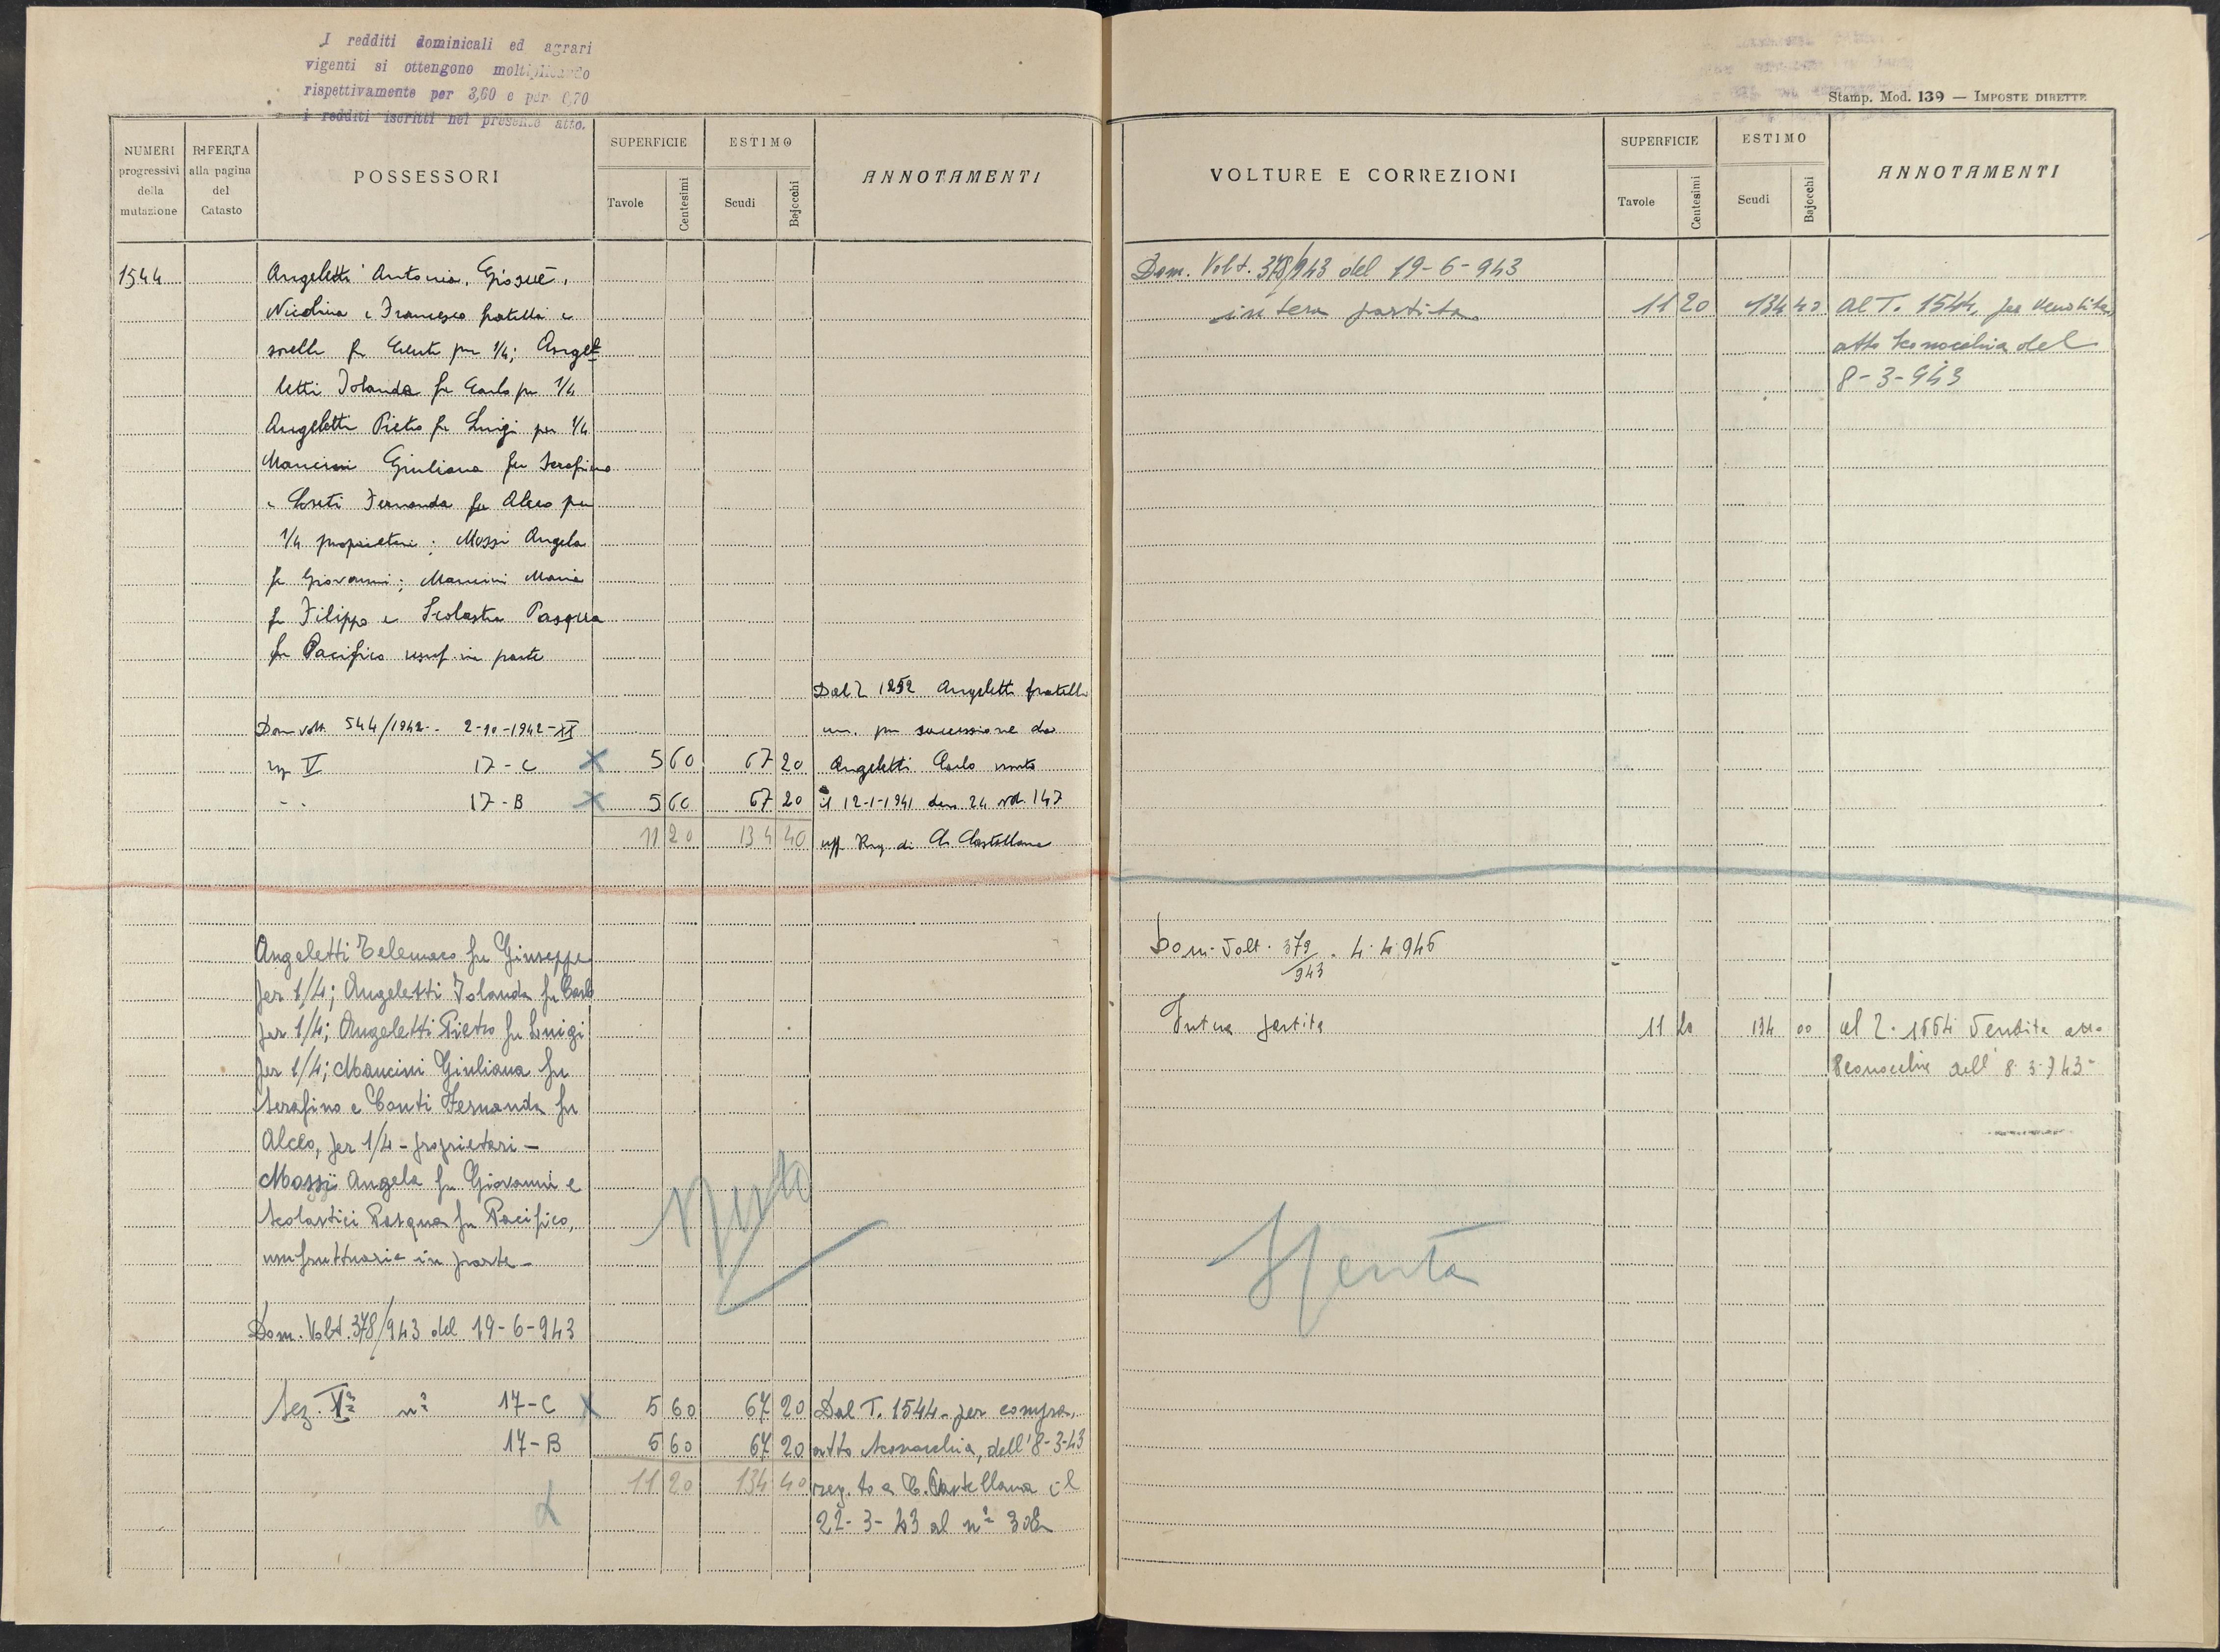 I redditi dominicali ed agrari
vigenti si ottengono moltiplicando
rispettivamente per 3,60 e per 0,70
i redditi iscritti nel presente atto.
NUMERI progressivi della mutazione
RIFERTA alla pagina del Catasto
POSSESSORI
SUPERFICIE
Tavole Centesimi
ESTIMO
Scudi Bajocchi
ANNOTAMENTI
1544 Angeletti Antonia, Giosuè,
Nicolina e Francesco fratelli e
sorelle fu per 1/4; Angel
letti Iolanda fu Carlo per 1/4
Angeletti Pietro fu Luigi per 1/4
Mancini Giuliana fu Serafino
e Fernanda fu Alceo per
1/4 proprietari; Mossi Angela
fu Giovanni; Mancini Maria
fu Filippo e Scolastici Pasqua
fu Pacifico usuf in parte
Dal T 1252 Angeletti fratelli
Dom volt. 544/1942 - 2-10-1942-XX
per successione da
V 17-C 5 60 67 20 Angeletti Carlo morto
17-B 5 60 67 20 il 12-1-1941 den 24 vol. 147
11 20 134 40 uff Reg di C. Castellana
Angeletti Telemaco fu Giuseppe
per 1/4; Angeletti Iolanda fu Carlo
per 1/4; Angeletti Pietro fu Luigi
per 1/4; Mancini Giuliana fu
Serafino e Conti Fernanda fu
Alceo, per 1/4 - proprietari -
Mossi Angela fu Giovanni e
Scolastici Pasqua fu Pacifico,
usufruttuarie in parte -
Dom. Volt. 378/943 del 19-6-943
Sez. Vª nº 17-C 5 60 67 20 Dal T. 1544 per compra,
17-B 5 60 67 20 atto Sconocchia, dell'8-3-43
11 20 134 40 reg.to a C. Castellana il
22-3-43 al nº
Stamp. Mod. 139 — IMPOSTE DIRETTE
VOLTURE E CORREZIONI
SUPERFICIE
Tavole Centesimi
ESTIMO
Scudi Bajocchi
ANNOTAMENTI
Dom. Volt. 378/943 del 19-6-943
intera partita 11 20 134 40 al T. 1544, per vendita
atto Sconocchia del
8-3-943
Dom. Volt. 379/943 . 4.4.946
Intera partita 11 20 134 00 al T. 1664 Vendita atto
Sconocchia dell' 8-3-943-
Spenta